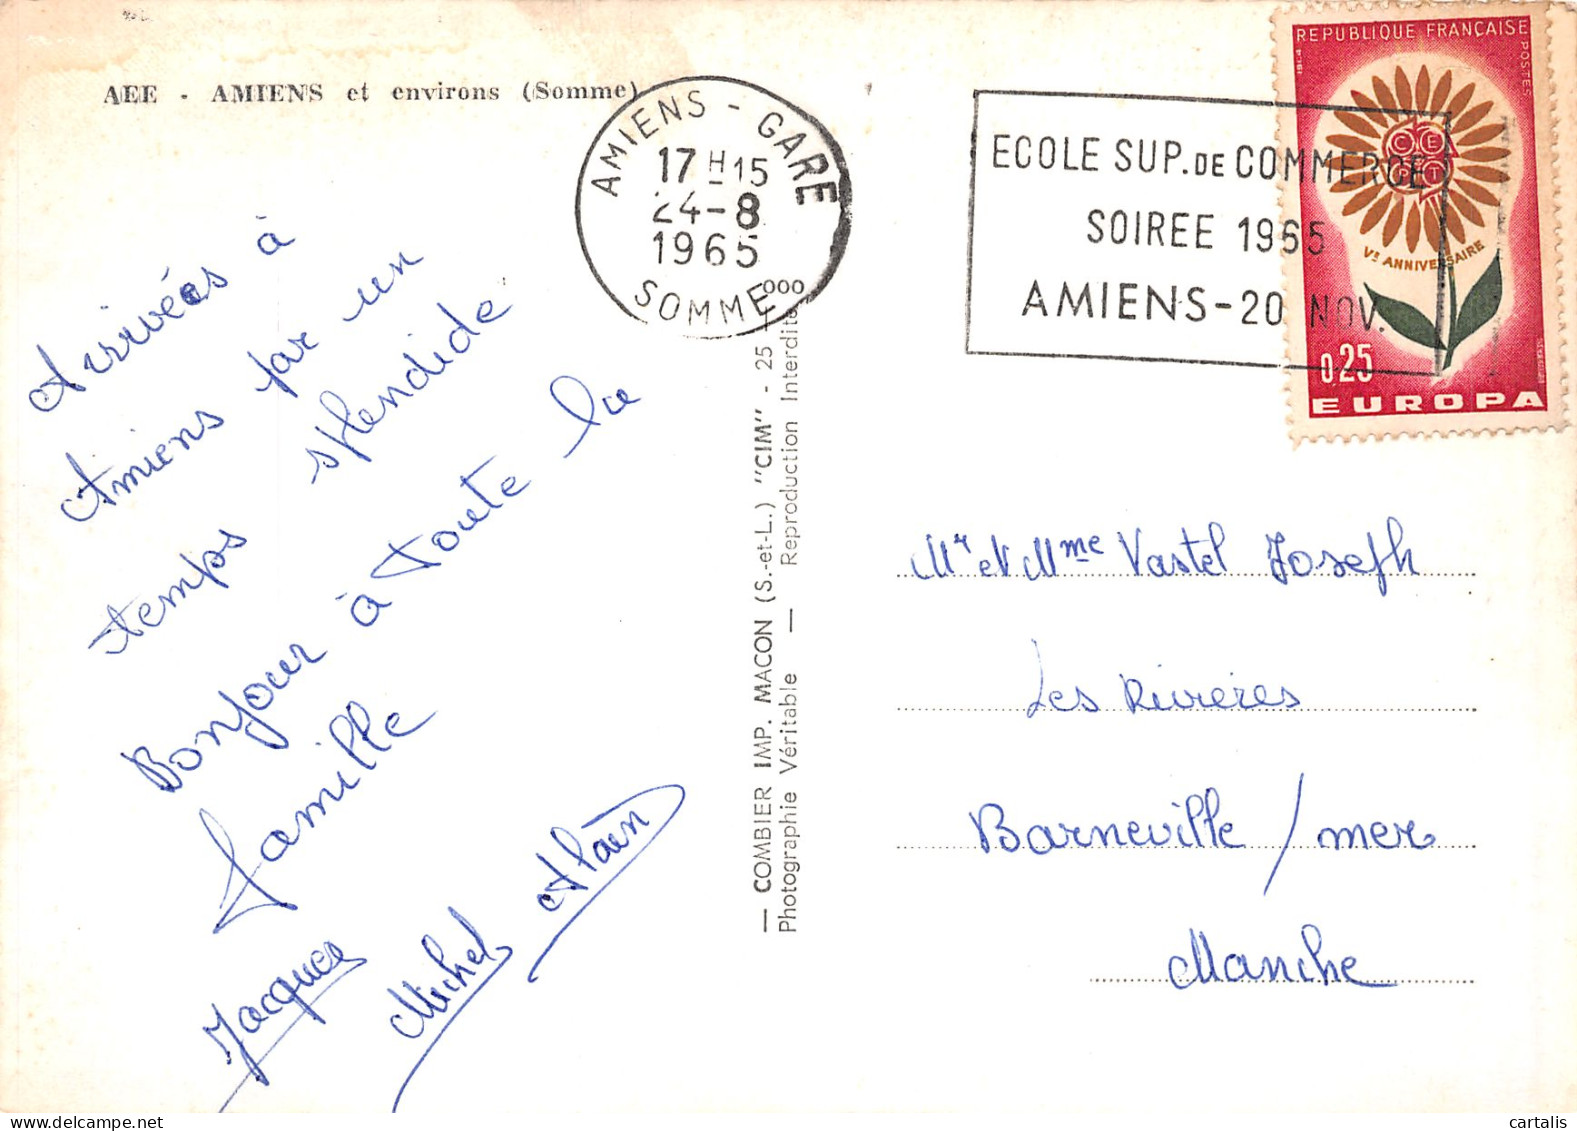 AEE - AMIENS et environs (Somme)
Arrivées à
Amiens par un
temps splendide
Bonjour à toute la
famille
Jacques
Michel
Alain
AMIENS - GARE
17 H 15
24-8
1965
SOMME
ECOLE SUP. DE COMMERCE
SOIREE 1965
AMIENS-20 NOV.
REPUBLIQUE FRANÇAISE
POSTES
1964
CEPT
Ve ANNIVERSAIRE
0,25
EUROPA
— COMBIER IMP. MACON (S.-et-L.) "CIM" - 25 - 000
Photographie Véritable — Reproduction Interdite
Mr et Mme Vastel Joseph
Les Rivieres
Barneville / mer
Manche
cartalis